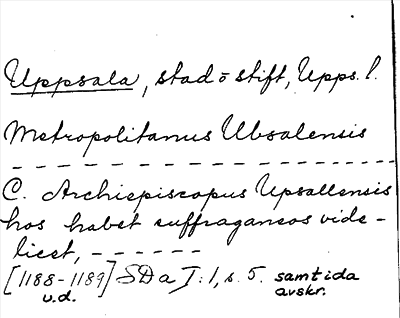 Uppsala, stad o stift, Upps. l.
Metropolitanus Ubsalensis
— — — — — — — — — — — — — — — —
C. Archiepiscopus Upsallensis
hos habet suffraganeos vide-
licet, — — — — — —
[1188-1189] SD a I:1, s. 5. samtida
u.d. avskr.